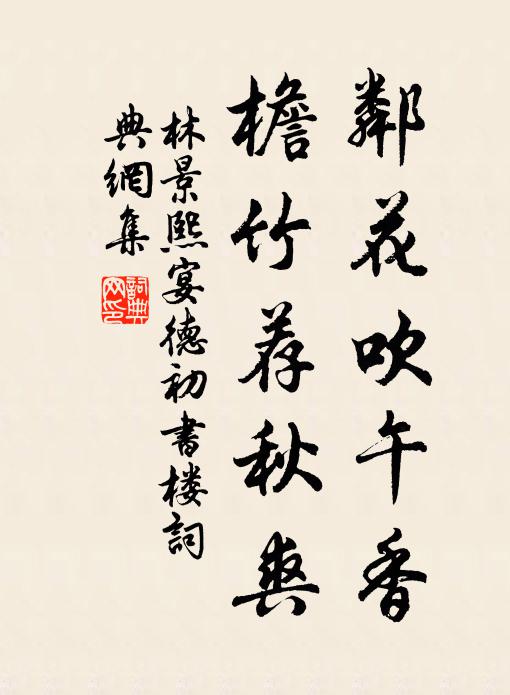 鄰花吹午香
檐竹荐秋爽
林景熙宴德初書楼詞
典網集
詞典网印